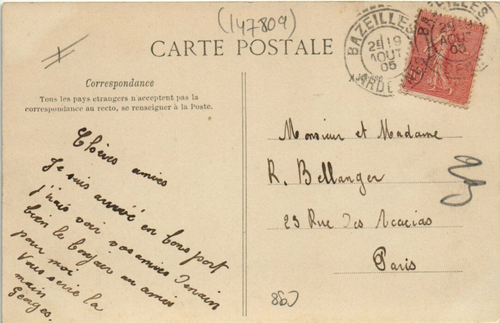 (147809)
CARTE POSTALE
BAZEILLES
25 19
AOUT
05
ARDENNES
Correspondance
Tous les pays étrangers n'acceptent pas la
correspondance au recto, se renseigner à la Poste.
Chères amies
Je suis arrivé en bons port
J'irais voir vos amies Demain
bien le bonjour au amies
pour moi
Vous serre la
main
Georges.
Monsieur et Madame
R. Bellanger
23 Rue Des Acacias
Paris